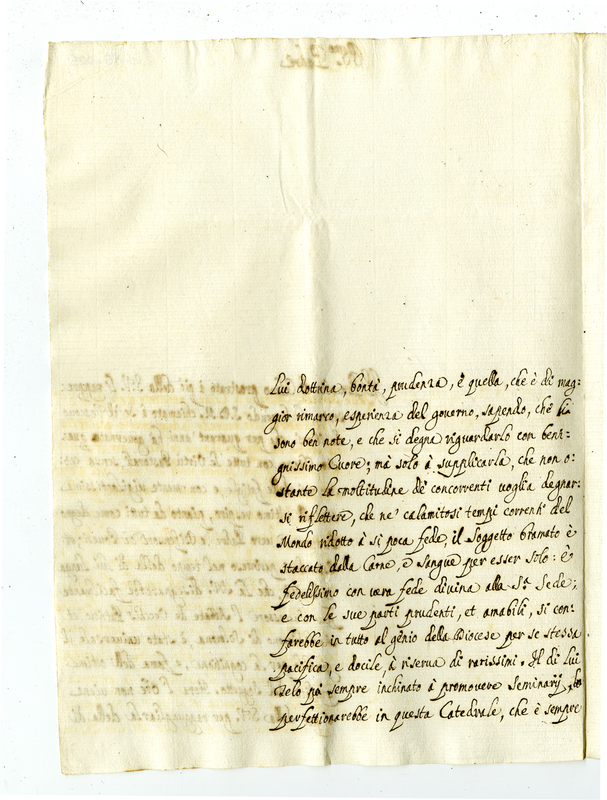 Lui dottrina, bontà, prudenza, è quella, che è di mag-
gior rimarco, esperienza del governo, sapendo, che
sono ben note, e che si degna riguardarlo con beni=
gnissimo Cuore; mà solo à supplicarla, che non o=
stante la moltitudine de' concorrenti voglia degnar=
si riflettere, che ne' calamitosi tempi correnti del
Mondo ridotto à si poca fede, il Soggetto bramato è
staccato dalla Carne, e Sangue per esser solo: è
fedelissimo con vera fede divina alla Sta Sede;
e con le sue parti prudenti, et amabili, si con=
farebbe in tutto al genio della Diocese per se stessa
pacifica, e docile à riserva di rarissimi. Il di Lui
zelo poi sempre inchinato à promovere Seminarij
perfettionarebbe in questa Catedrale, che è sempre